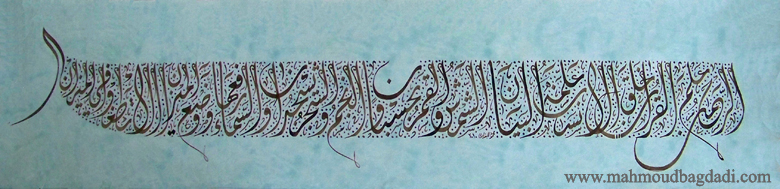 الرحمن علم القرآن خلق الإنسان علمه البيان الشمس والقمر بحسبان والنجم والشجر يسجدان والسماء رفعها ووضع الميزان ألا تطغوا في الميزان
www.mahmoudbagdadi.com